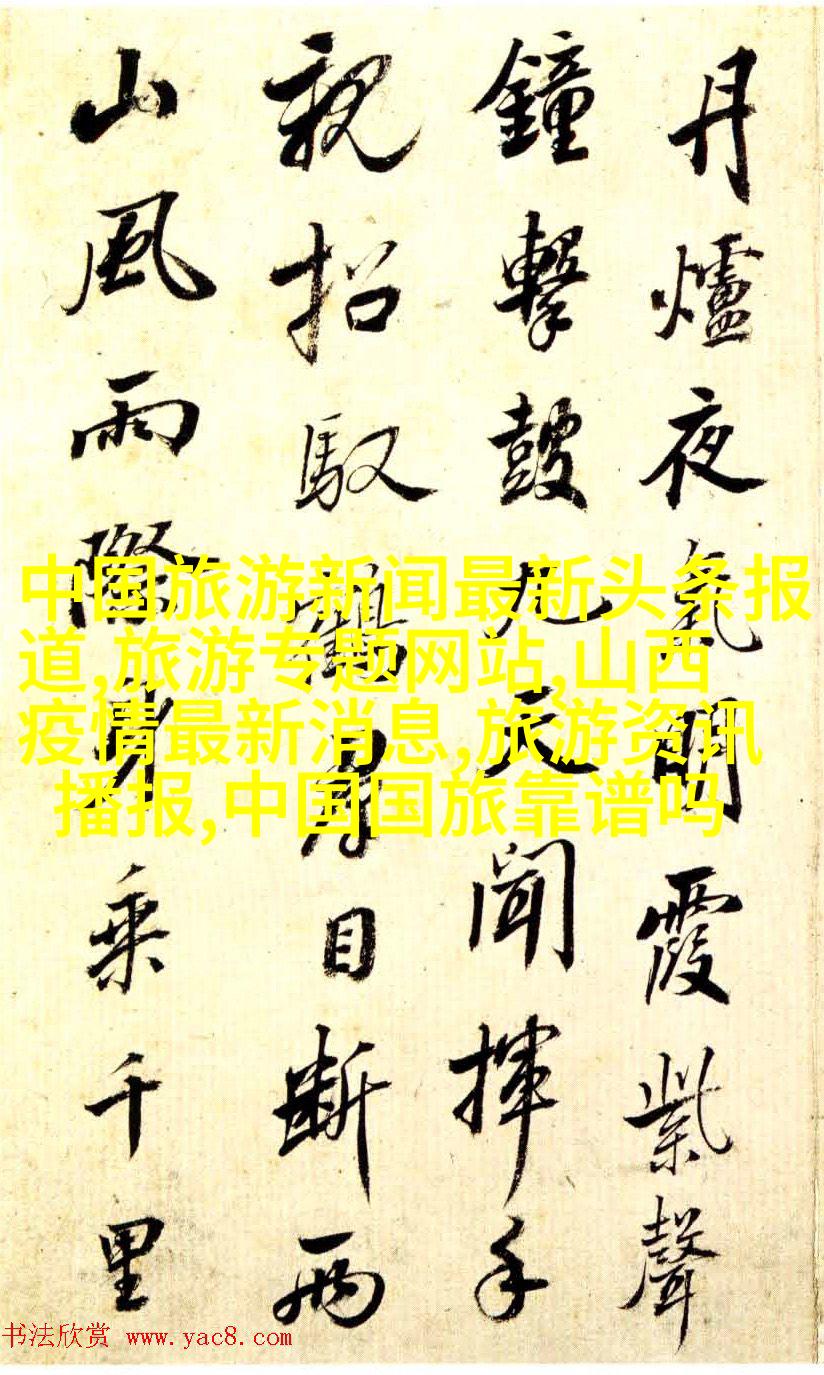 丹爐夜氣明霞紫聲
鐘擊鼓九天聞揮手
親招馭鶴君目斷兩
山風雨際身乘千里
中国旅游新闻最新头条报
道,旅游专题网站,山西
疫情最新消息,旅游资讯
播报,中国国旅靠谱吗
书法欣赏 www.yac8.com